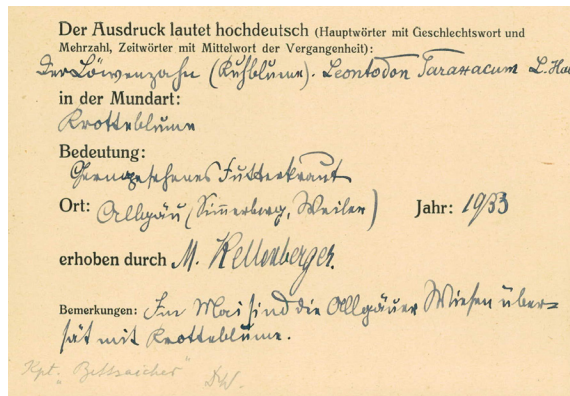 Der Ausdruck lautet hochdeutsch (Hauptwörter mit Geschlechtswort und
Mehrzahl, Zeitwörter mit Mittelwort der Vergangenheit):
Der Löwenzahn (Kuhblume). Leontodon Taraxacum L.
in der Mundart:
Krotteblume
Bedeutung:
Gerngesehenes Futterkraut
Ort: Allgäu (Simmerberg, Weiler) Jahr: 1933
erhoben durch M. Kellenberger.
Bemerkungen: Im Mai sind die Allgäuer Wiesen über=
sät mit Krotteblume.
Kpt. "Bettsaicher" DW.